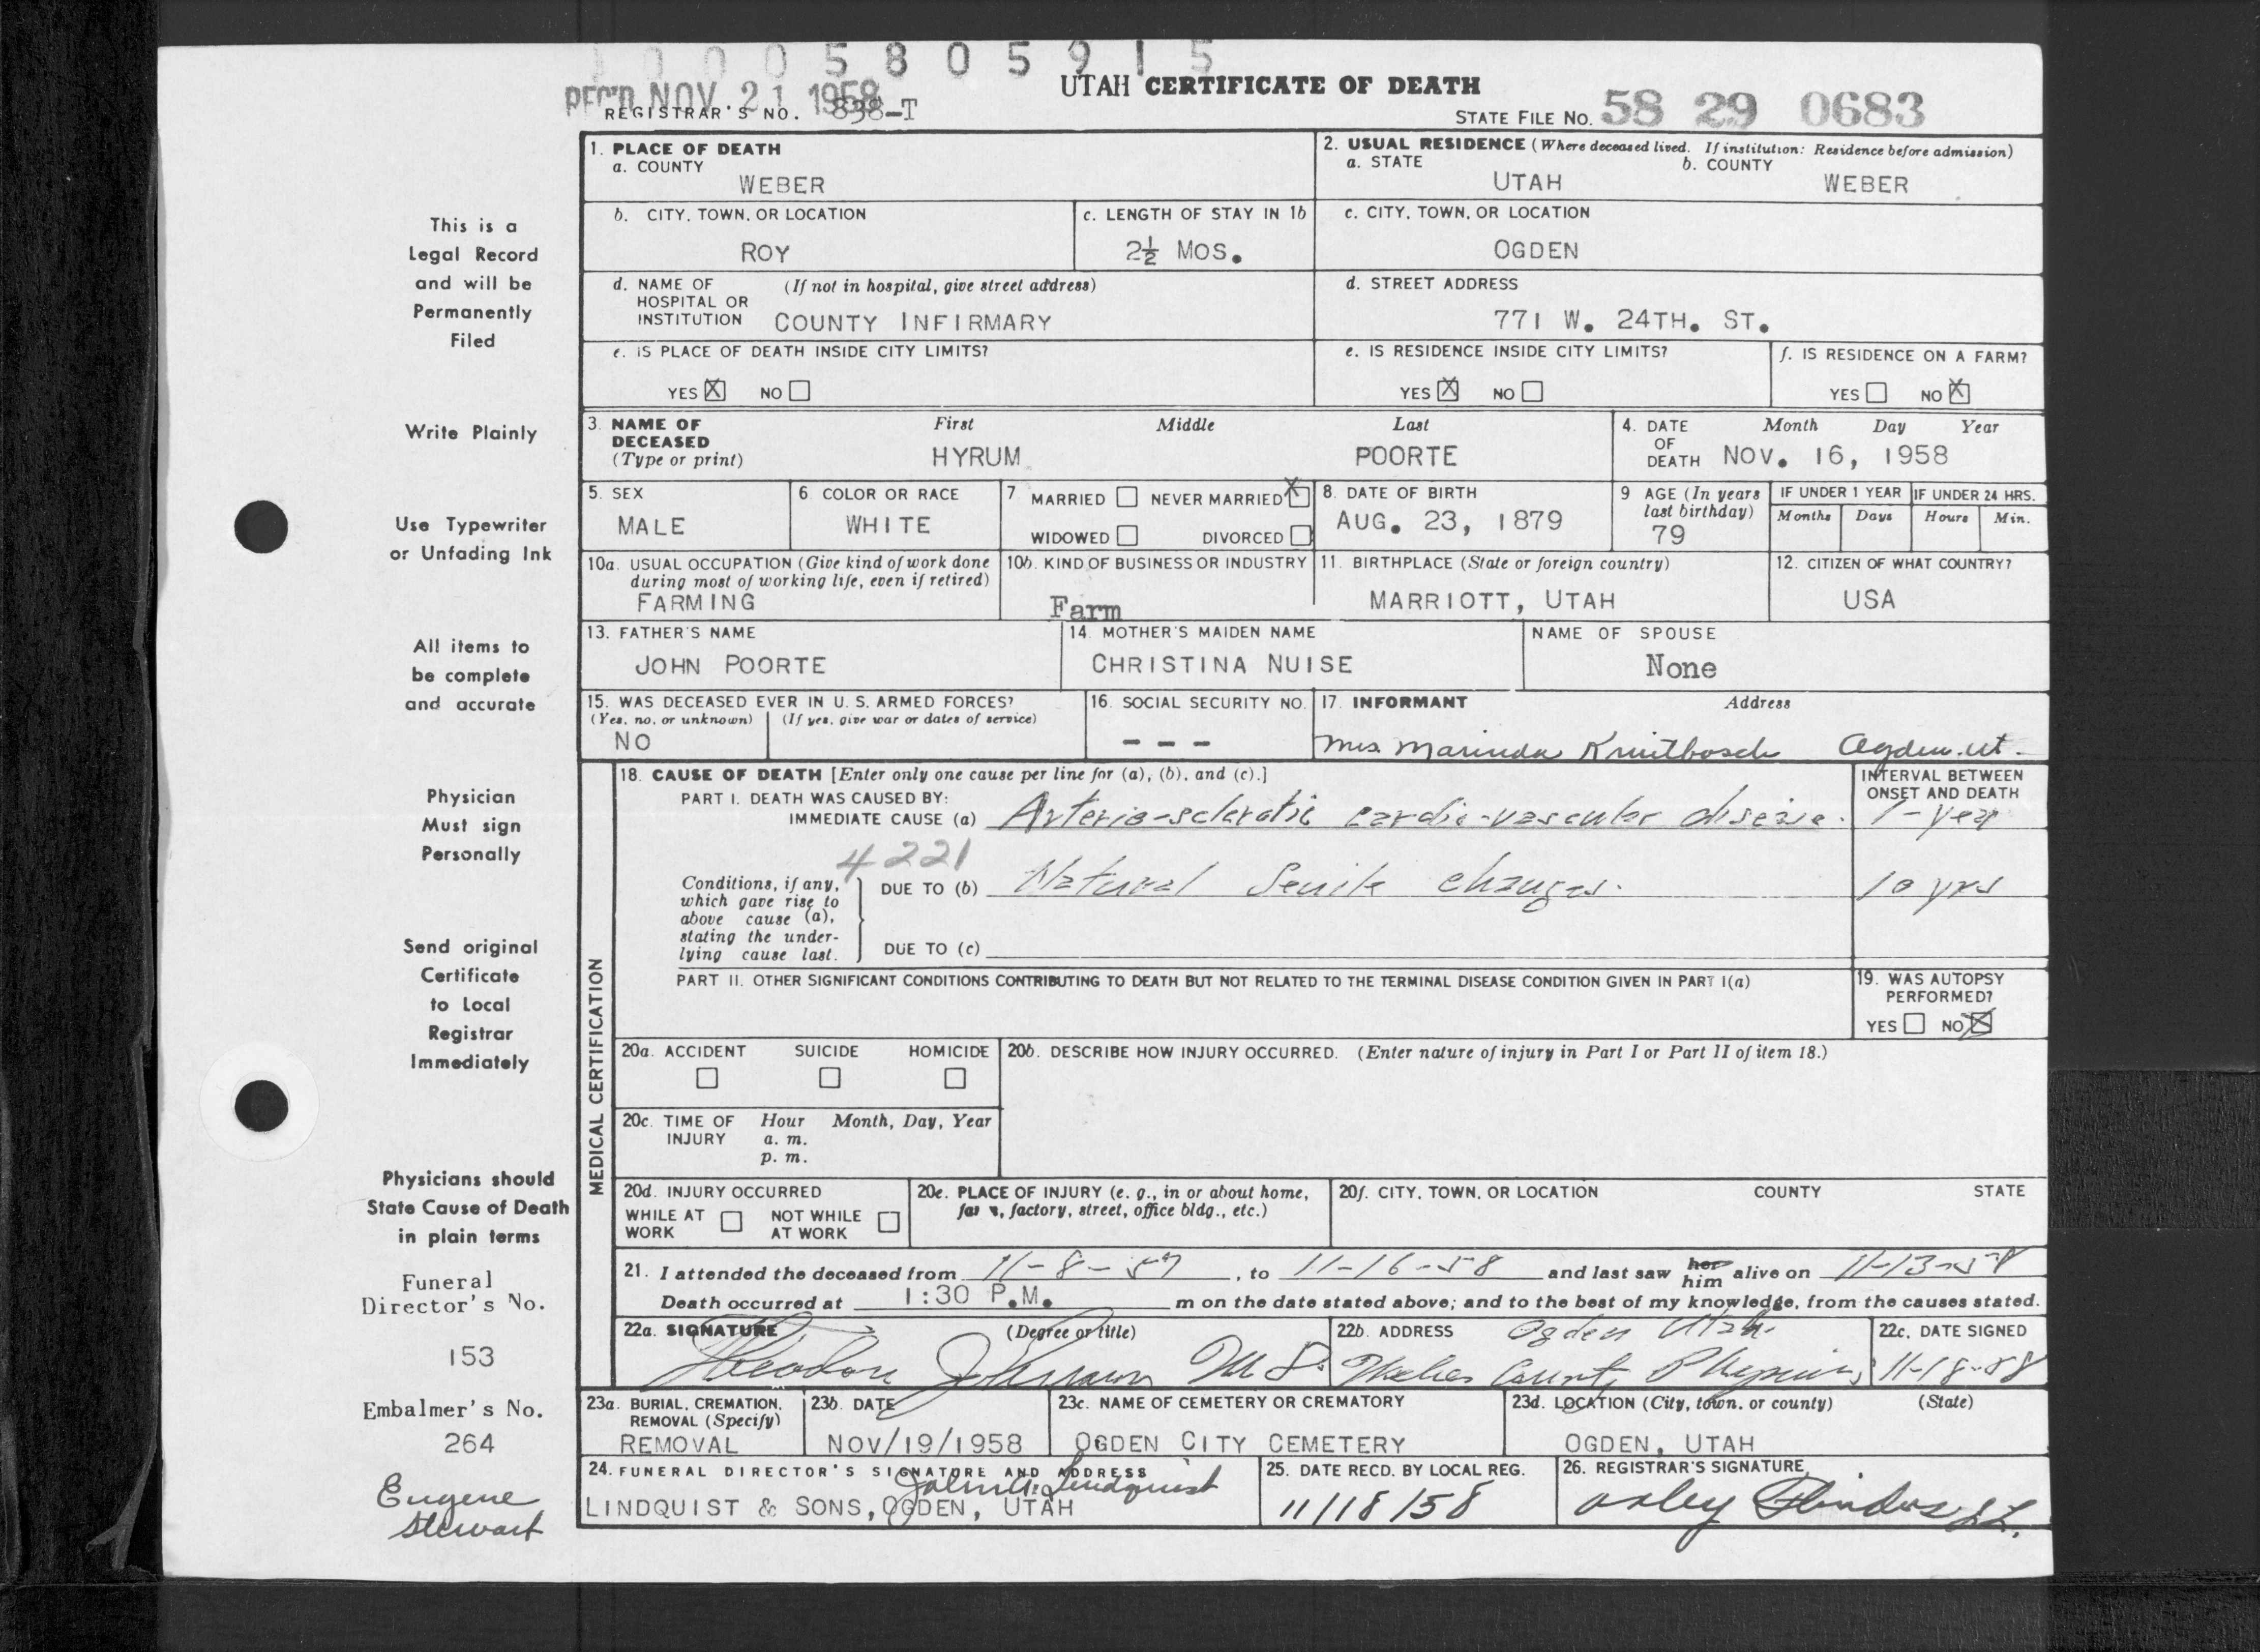 1 0 0 0 5 8 0 5 9 1 5
REC'D NOV 21 1958
UTAH CERTIFICATE OF DEATH
REGISTRAR'S NO. 838-T
STATE FILE NO. 58 29 0683
1. PLACE OF DEATH
a. COUNTY
WEBER
2. USUAL RESIDENCE (Where deceased lived. If institution: Residence before admission)
a. STATE b. COUNTY
UTAH WEBER
b. CITY, TOWN, OR LOCATION
ROY
c. LENGTH OF STAY IN 1b
2½ MOS.
c. CITY, TOWN, OR LOCATION
OGDEN
d. NAME OF (If not in hospital, give street address)
HOSPITAL OR
INSTITUTION COUNTY INFIRMARY
d. STREET ADDRESS
771 W. 24TH. ST.
e. IS PLACE OF DEATH INSIDE CITY LIMITS?
YES X NO
e. IS RESIDENCE INSIDE CITY LIMITS?
YES X NO
f. IS RESIDENCE ON A FARM?
YES NO X
3. NAME OF DECEASED (Type or print)
First Middle Last
HYRUM POORTE
4. DATE OF DEATH
Month Day Year
NOV. 16, 1958
5. SEX
MALE
6. COLOR OR RACE
WHITE
7. MARRIED NEVER MARRIED X
WIDOWED DIVORCED
8. DATE OF BIRTH
AUG. 23, 1879
9 AGE (In years last birthday)
79
IF UNDER 1 YEAR IF UNDER 24 HRS.
Months Days Hours Min.
10a. USUAL OCCUPATION (Give kind of work done
during most of working life, even if retired)
FARMING
10b. KIND OF BUSINESS OR INDUSTRY
Farm
11. BIRTHPLACE (State or foreign country)
MARRIOTT, UTAH
12. CITIZEN OF WHAT COUNTRY?
USA
13. FATHER'S NAME
JOHN POORTE
14. MOTHER'S MAIDEN NAME
CHRISTINA NUISE
NAME OF SPOUSE
None
15. WAS DECEASED EVER IN U. S. ARMED FORCES?
(Yes, no, or unknown) (If yes, give war or dates of service)
NO
16. SOCIAL SECURITY NO.
- - -
17. INFORMANT Address
Mrs. Marinda Kruitbosch Ogden. Ut.
MEDICAL CERTIFICATION
18. CAUSE OF DEATH [Enter only one cause per line for (a), (b), and (c).]
INTERVAL BETWEEN
ONSET AND DEATH
PART I. DEATH WAS CAUSED BY:
IMMEDIATE CAUSE (a) Arterio-sclerotic cardio-vascular disease. 1-year
4221
Conditions, if any,
which gave rise to
above cause (a),
stating the under-
lying cause last.
DUE TO (b) Natural Senile changes. 10 yrs
DUE TO (c)
PART II. OTHER SIGNIFICANT CONDITIONS CONTRIBUTING TO DEATH BUT NOT RELATED TO THE TERMINAL DISEASE CONDITION GIVEN IN PART I(a)
19. WAS AUTOPSY
PERFORMED?
YES NO X
20a. ACCIDENT SUICIDE HOMICIDE
20b. DESCRIBE HOW INJURY OCCURRED. (Enter nature of injury in Part I or Part II of item 18.)
20c. TIME OF INJURY
Hour Month, Day, Year
a. m.
p. m.
20d. INJURY OCCURRED
WHILE AT WORK
NOT WHILE AT WORK
20e. PLACE OF INJURY (e. g., in or about home,
farm, factory, street, office bldg., etc.)
20f. CITY, TOWN, OR LOCATION COUNTY STATE
21. I attended the deceased from 11-8-57, to 11-16-58 and last saw her him alive on 11-13-58
Death occurred at 1:30 P.M. m on the date stated above; and to the best of my knowledge, from the causes stated.
22a. SIGNATURE (Degree or title)
Theodore Johnson M D.
22b. ADDRESS Ogden Utah.
Weber County
22c. DATE SIGNED
11-18-58
23a. BURIAL, CREMATION,
REMOVAL (Specify)
REMOVAL
23b. DATE
NOV/19/1958
23c. NAME OF CEMETERY OR CREMATORY
OGDEN CITY CEMETERY
23d. LOCATION (City, town, or county) (State)
OGDEN, UTAH
24. FUNERAL DIRECTOR'S SIGNATURE AND ADDRESS
John A. Lindquist
LINDQUIST & SONS, OGDEN, UTAH
25. DATE RECD. BY LOCAL REG.
11/18/58
26. REGISTRAR'S SIGNATURE
This is a
Legal Record
and will be
Permanently
Filed
Write Plainly
Use Typewriter
or Unfading Ink
All items to
be complete
and accurate
Physician
Must sign
Personally
Send original
Certificate
to Local
Registrar
Immediately
Physicians should
State Cause of Death
in plain terms
Funeral
Director's No.
153
Embalmer's No.
264
Eugene
Stewart